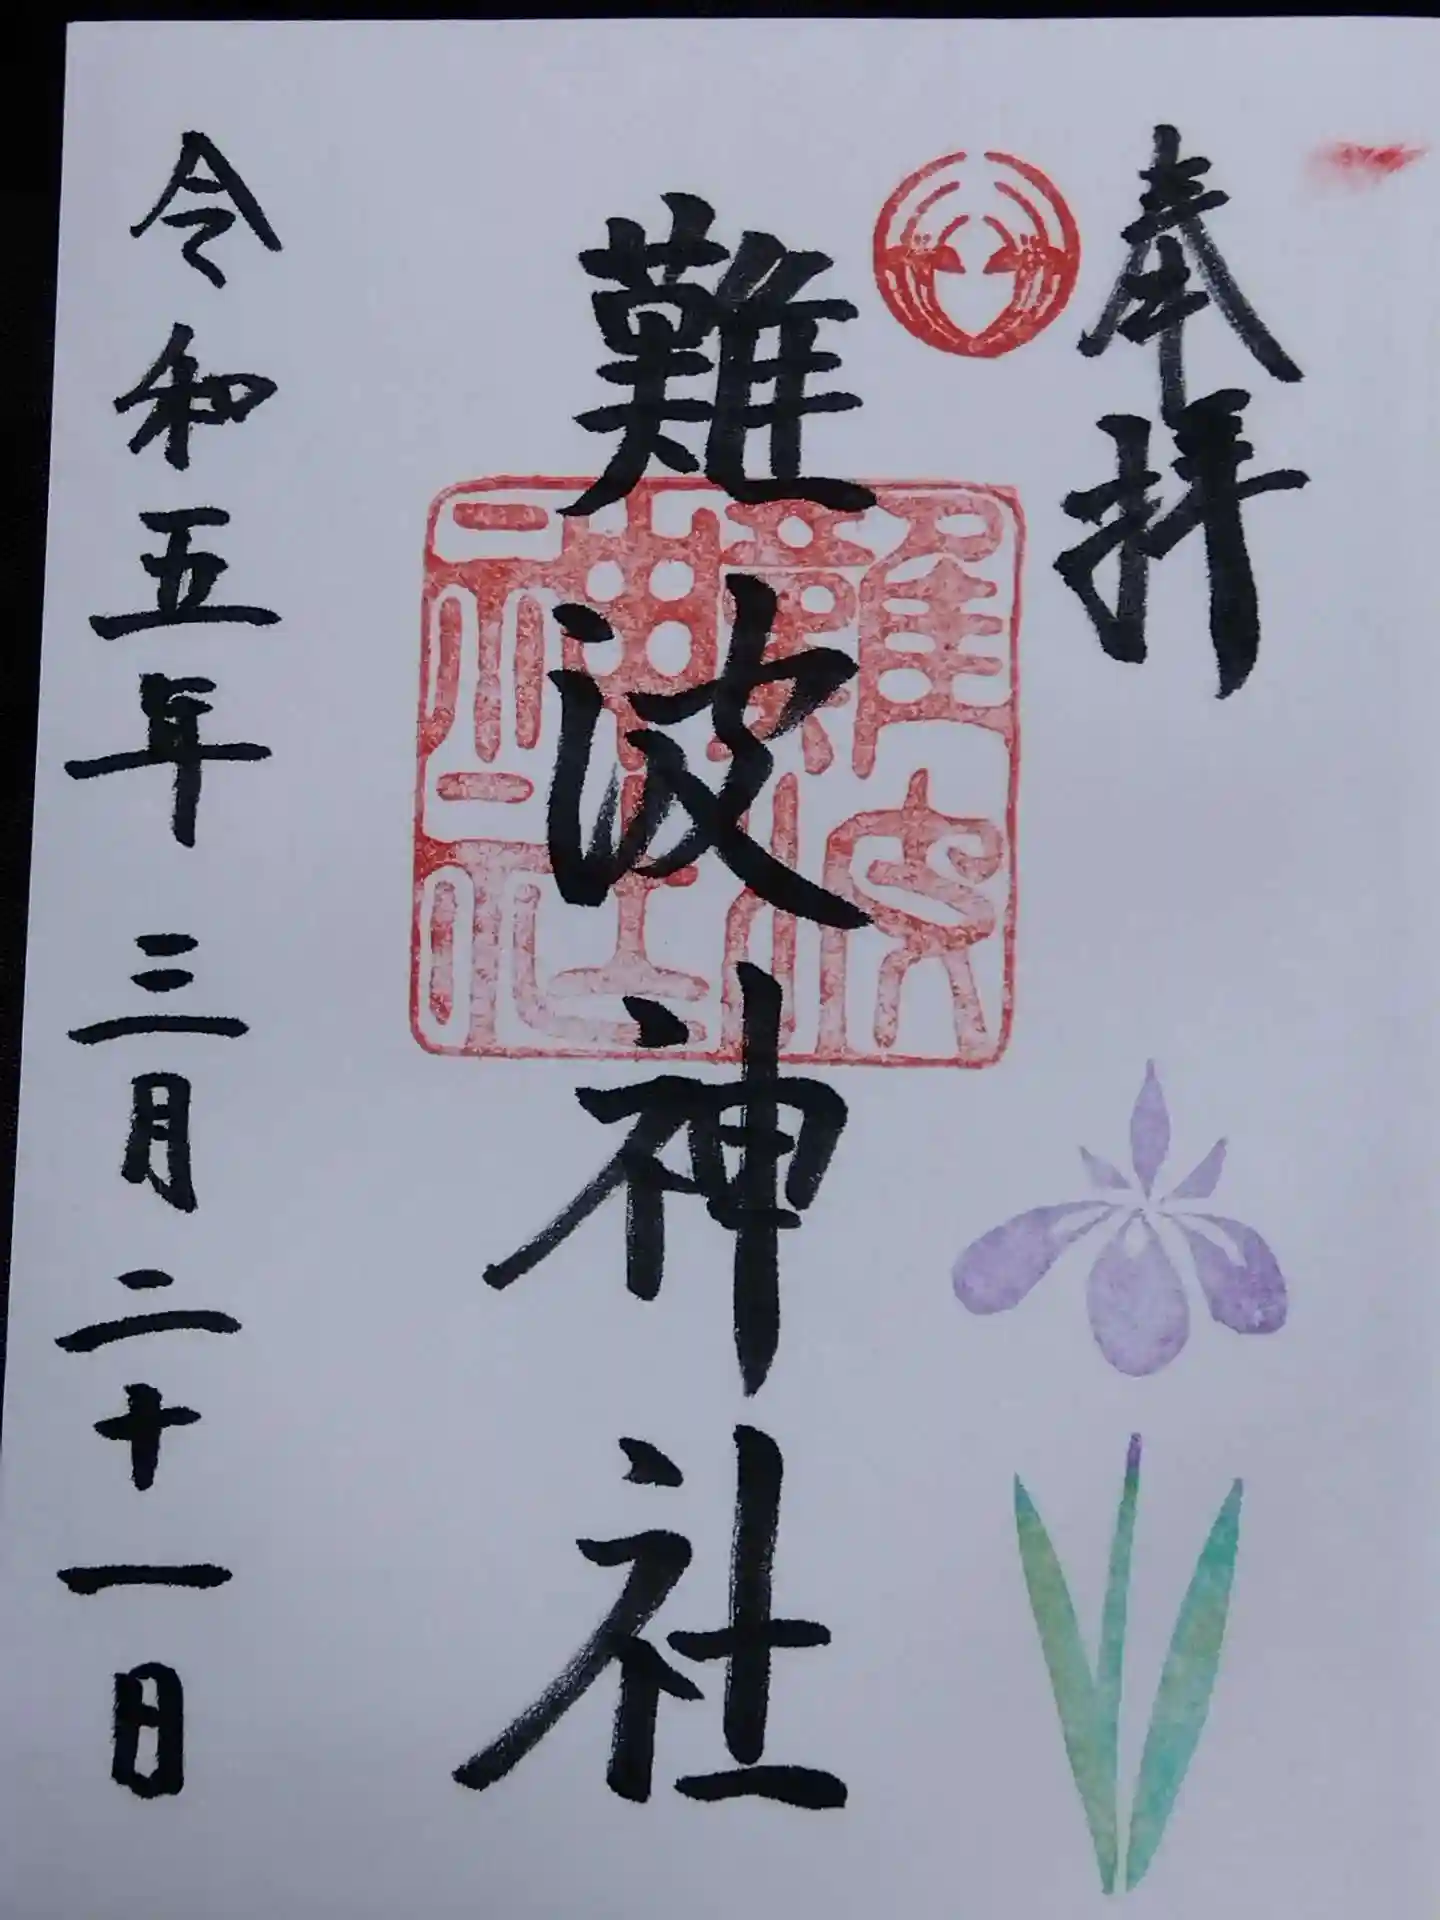 奉拝
難波神社
難波神社
令和五年三月二十一日